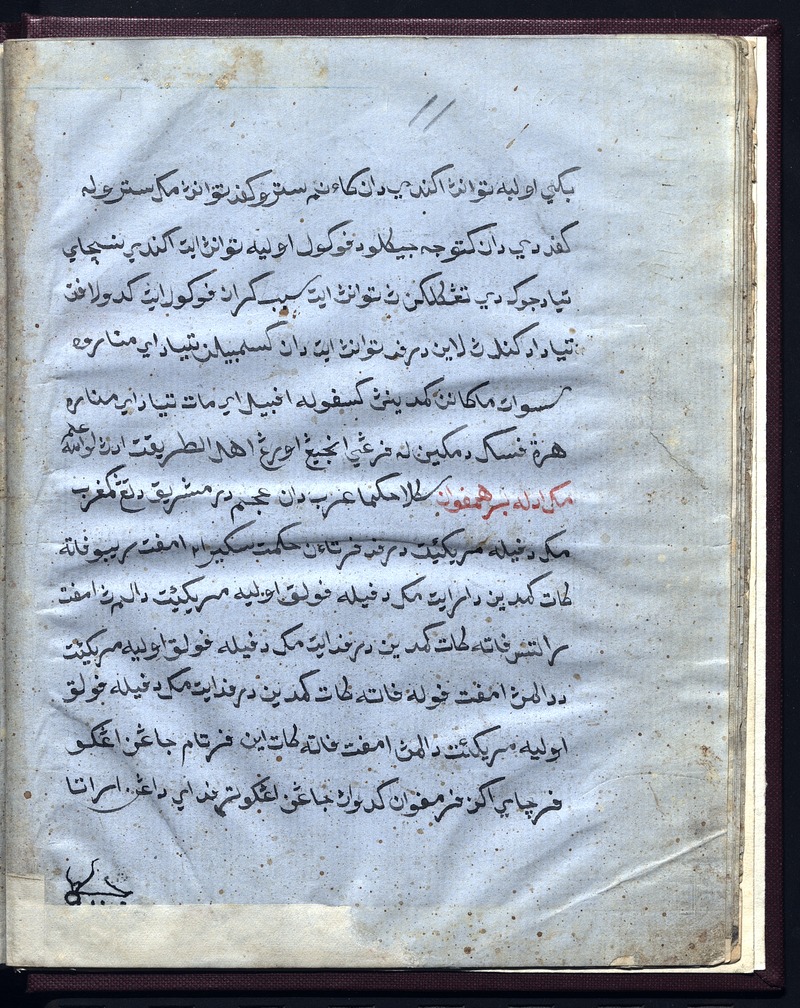 11
بكي اوليه توانڽ اكندي دان كات نم ستروكفد توانڽ مك ستروله
كفد دي دان كتوجه جيكلو دفوكول اوليه توانڽ ايت اكندي نسچاي
تياد جوك دي تڠݢلكن ث توانڽ ايت سبب كران فوكول ايت كدولافن
تياد اد كندق ث لاين درفد توانڽ ايت دان كسمبيلن تياد اي مناره
سسوات ماكانن كمدينن كسفوله افبيل اي مات تياد اي مناره
هرة فسك دمكين له فرڠي انجيڠ اورڠ اهل الطريقت ادڽ والله اعلم
مك ادله برهمفون سكل حكما عرب دان عجم در مشريق دتڠ كمغرب
مك دفيله مريكئت درفد فركتاءن حكمت سكير٢ امفت ريبو فاته
كات كمدين دار ايت مك دفيله فولق اوليه مريكئت دالمڽ امفت
راتس فاته كات كمدين درفد ايت مك دفيله فولق اوليه مريكئت
ددالمڽ امفت فوله فاته كات كمدين درفد ايت مك دفيله فولق
اوليه مريكئت دالمڽ امفت فاته كات اين فرتام جاڠن اڠكو
فرچاي اكن فرمفوان كدوان جاڠن اڠكو ترفداي داڠن ارتا